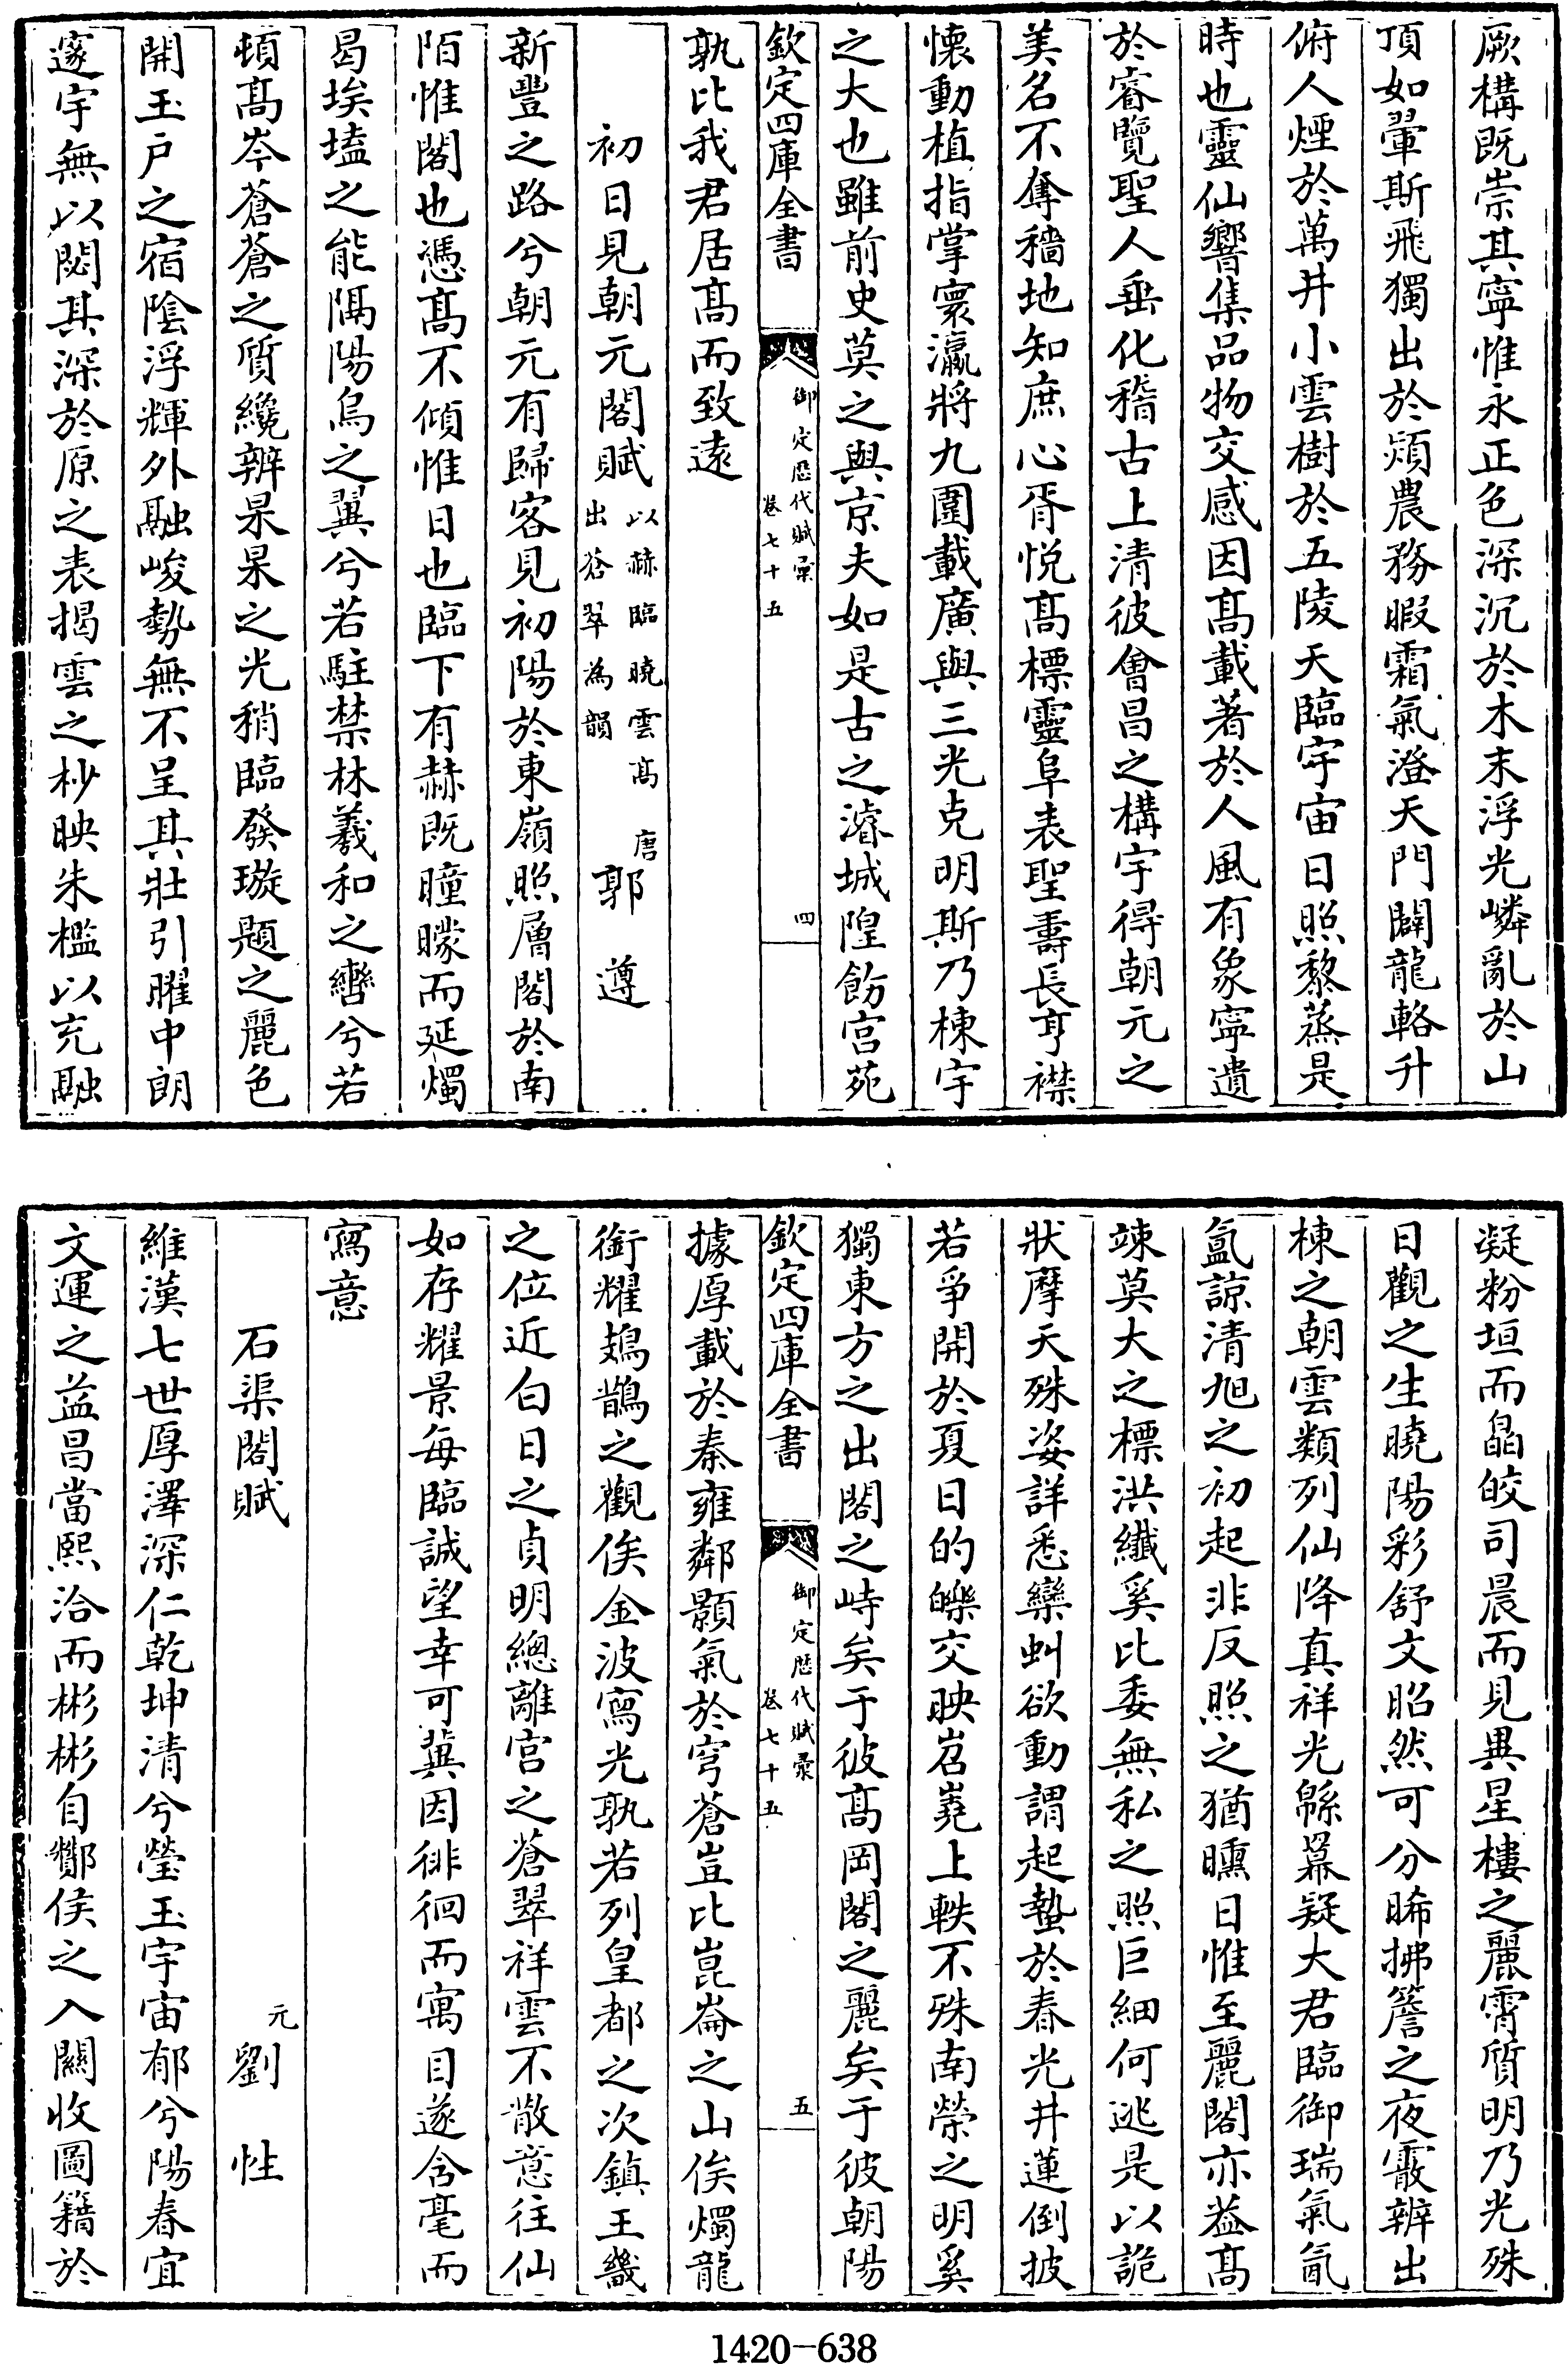 厥構既崇其寜惟永正色深沉於木末浮光嶙亂於山
頂如翬斯飛獨出於潁農務暇霜氣澄天門闢龍輅升
俯人煙於萬井小雲樹於五陵天臨宇宙日照黎蒸是
時也靈仙響集品物交感因髙載著於人風有象寜遺
於睿覽聖人垂化稽古上清彼㑹昌之構宇得朝元之
美名不奪穡地知庶心胥悦髙標靈阜表聖壽長亨襟
懐動植指掌寰瀛將九圍載廣與三光克明斯乃棟宇
之大也雖前史莫之與京夫如是古之濬城隍飭宫苑
欽定四庫全書
御定歴代賦彚
卷七十五
四
孰比我君居髙而致逺
初日見朝元閣賦以赫臨曉雲髙
出蒼翠為韻
唐郭遵
新豐之路兮朝元有歸客見初陽於東嶺照層閣於南
陌惟閣也憑髙不傾惟日也臨下有赫既瞳曚而延燭
曷埃壒之能隔陽烏之翼兮若駐禁林羲和之轡兮若
頓髙岑蒼蒼之質纔辨杲杲之光稍臨發璇題之麗色
開玉户之宿陰浮輝外融峻勢無不呈其壯引曜中朗
邃宇無以閟其深於原之表揭雲之杪映朱檻以充融
凝粉垣而皛皎司晨而見異星樓之麗霄質明乃光殊
日觀之生曉陽彩舒文昭然可分晞拂簷之夜霰辨出
棟之朝雲類列仙降真祥光緜羃疑大君臨御瑞氣氤
氲諒清旭之初起非反照之猶曛日惟至麗閣亦益髙
竦莫大之標洪纖奚比委無私之照巨細何逃是以詭
狀摩天殊姿詳悉欒虯欲動謂起蟄於春光井蓮倒披
若爭開於夏日的皪交映岧嶤上軼不殊南榮之明奚
獨東方之出閣之峙矣于彼髙岡閣之麗矣于彼朝陽
欽定四庫全書
御定歴代賦彚
卷七十五
五
據厚載於秦雍鄰顥氣於穹蒼豈比崑崙之山俟燭龍
銜耀鳷鵲之觀俟金波寫光孰若列皇都之次鎮王畿
之位近白日之貞明總離宫之蒼翠祥雲不散意往仙
如存耀景每臨誠望幸可冀因徘徊而寓目遂含毫而
寫意
石渠閣賦
元劉性
維漢七世厚澤深仁乾坤清兮瑩玉宇宙郁兮陽春宜
文運之益昌當熙洽而彬彬自酇侯之入闗收圖籍於
1420-638